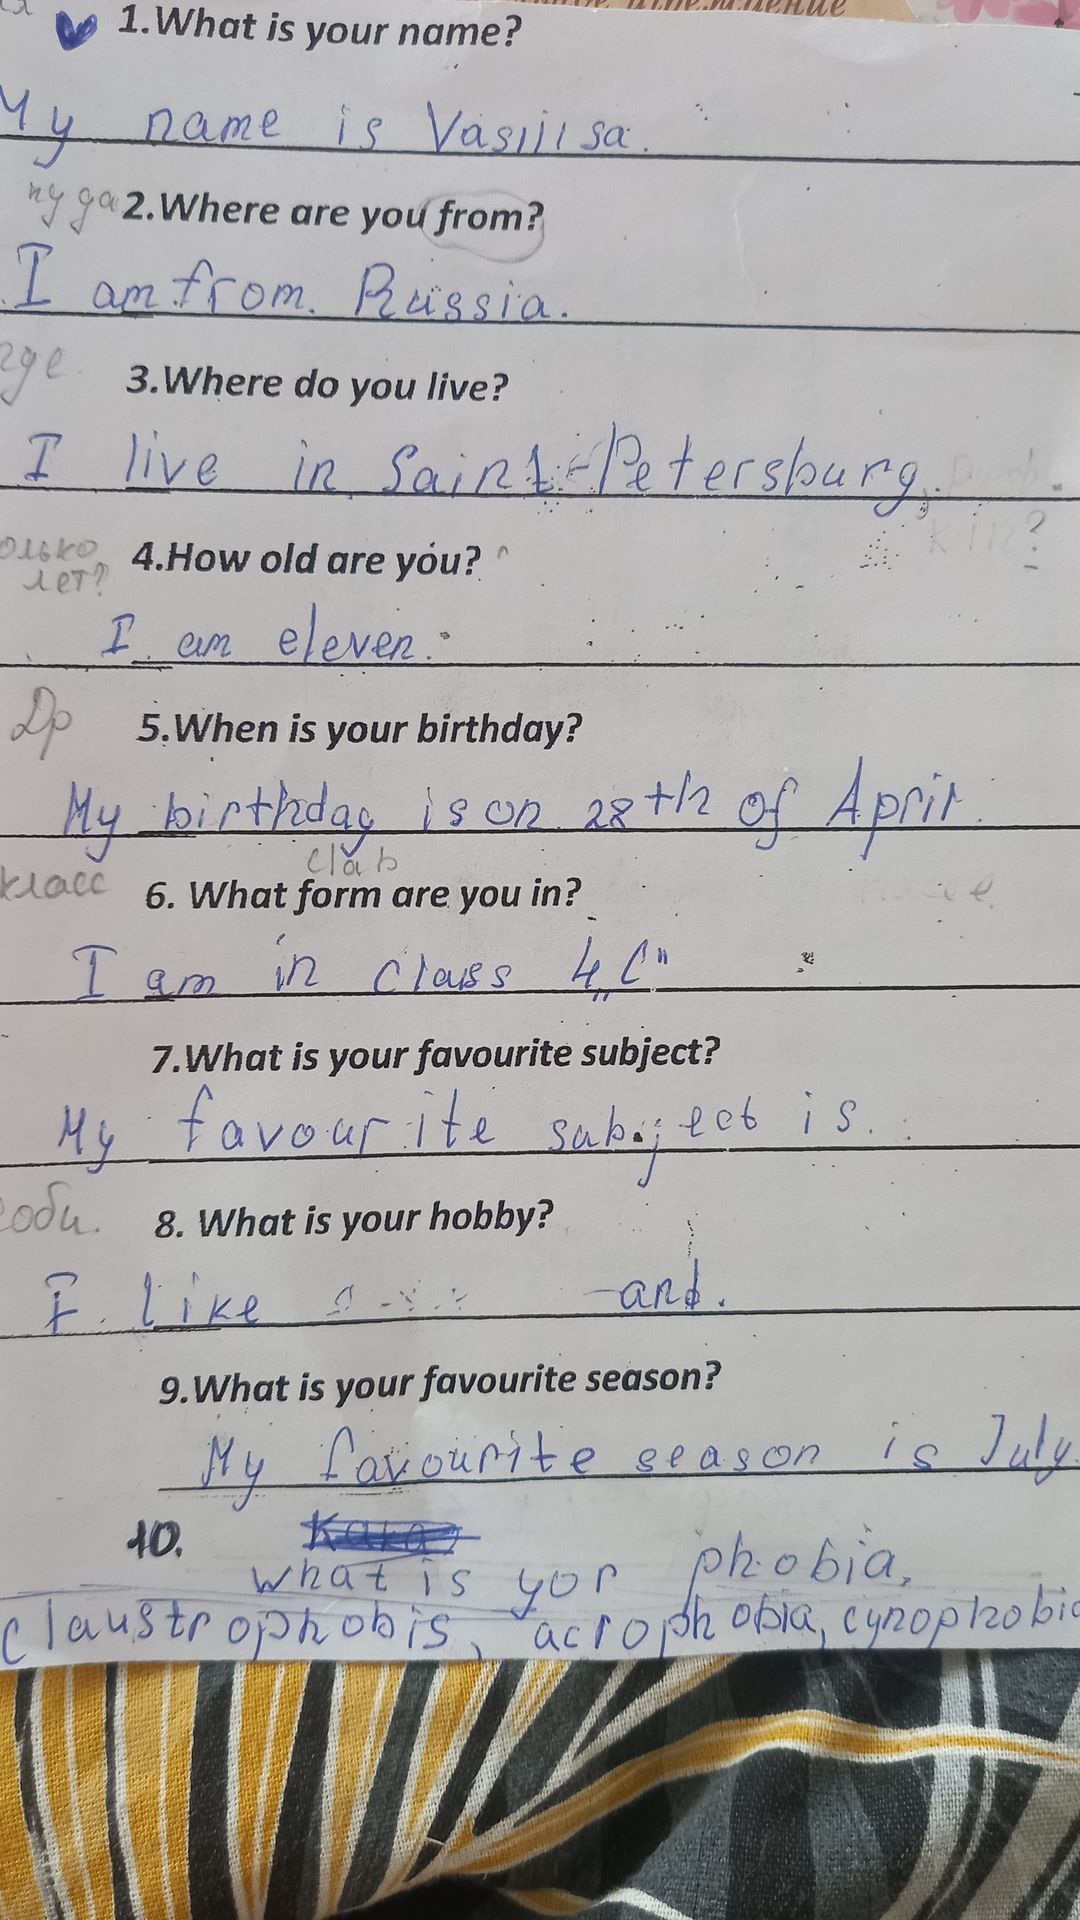 1.What is your name?
My name is Vasilisa.
куда 2.Where are you from?
I am from. Russia.
где 3.Where do you live?
I live in Saint-Petersburg.
олько 4.How old are you?
лет?
I am eleven.
Др 5.When is your birthday?
My birthday is on 28th of April.
класс 6. What form are you in?
I am in class 4„C"
7.What is your favourite subject?
My favourite subject is.
8. What is your hobby?
I like and.
9.What is your favourite season?
My favourite season is July
10.
what is yor phobia,
claustrophobis, acrophobia, cynophobia